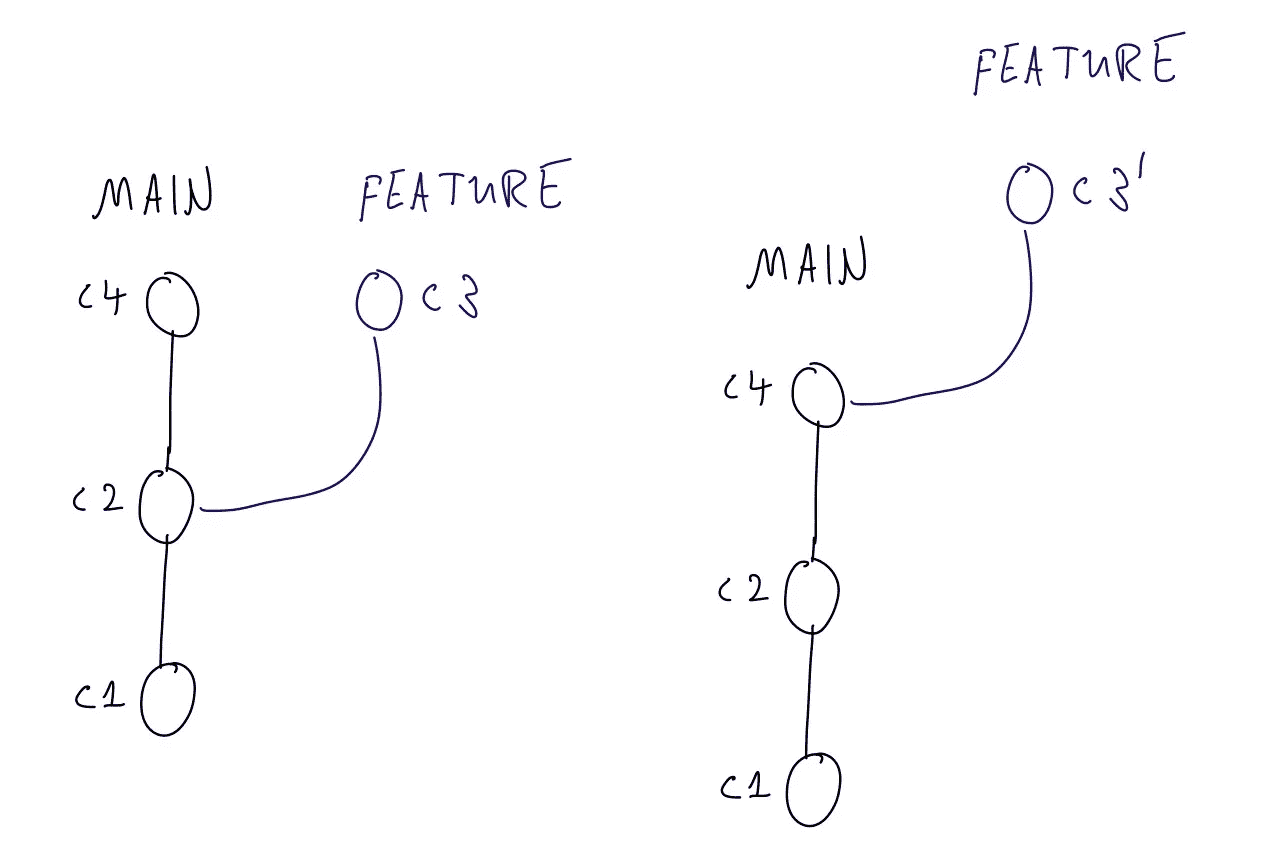 MAIN FEATURE
C4 C3
C2
C1
FEATURE
C3'
MAIN
C4
C2
C1